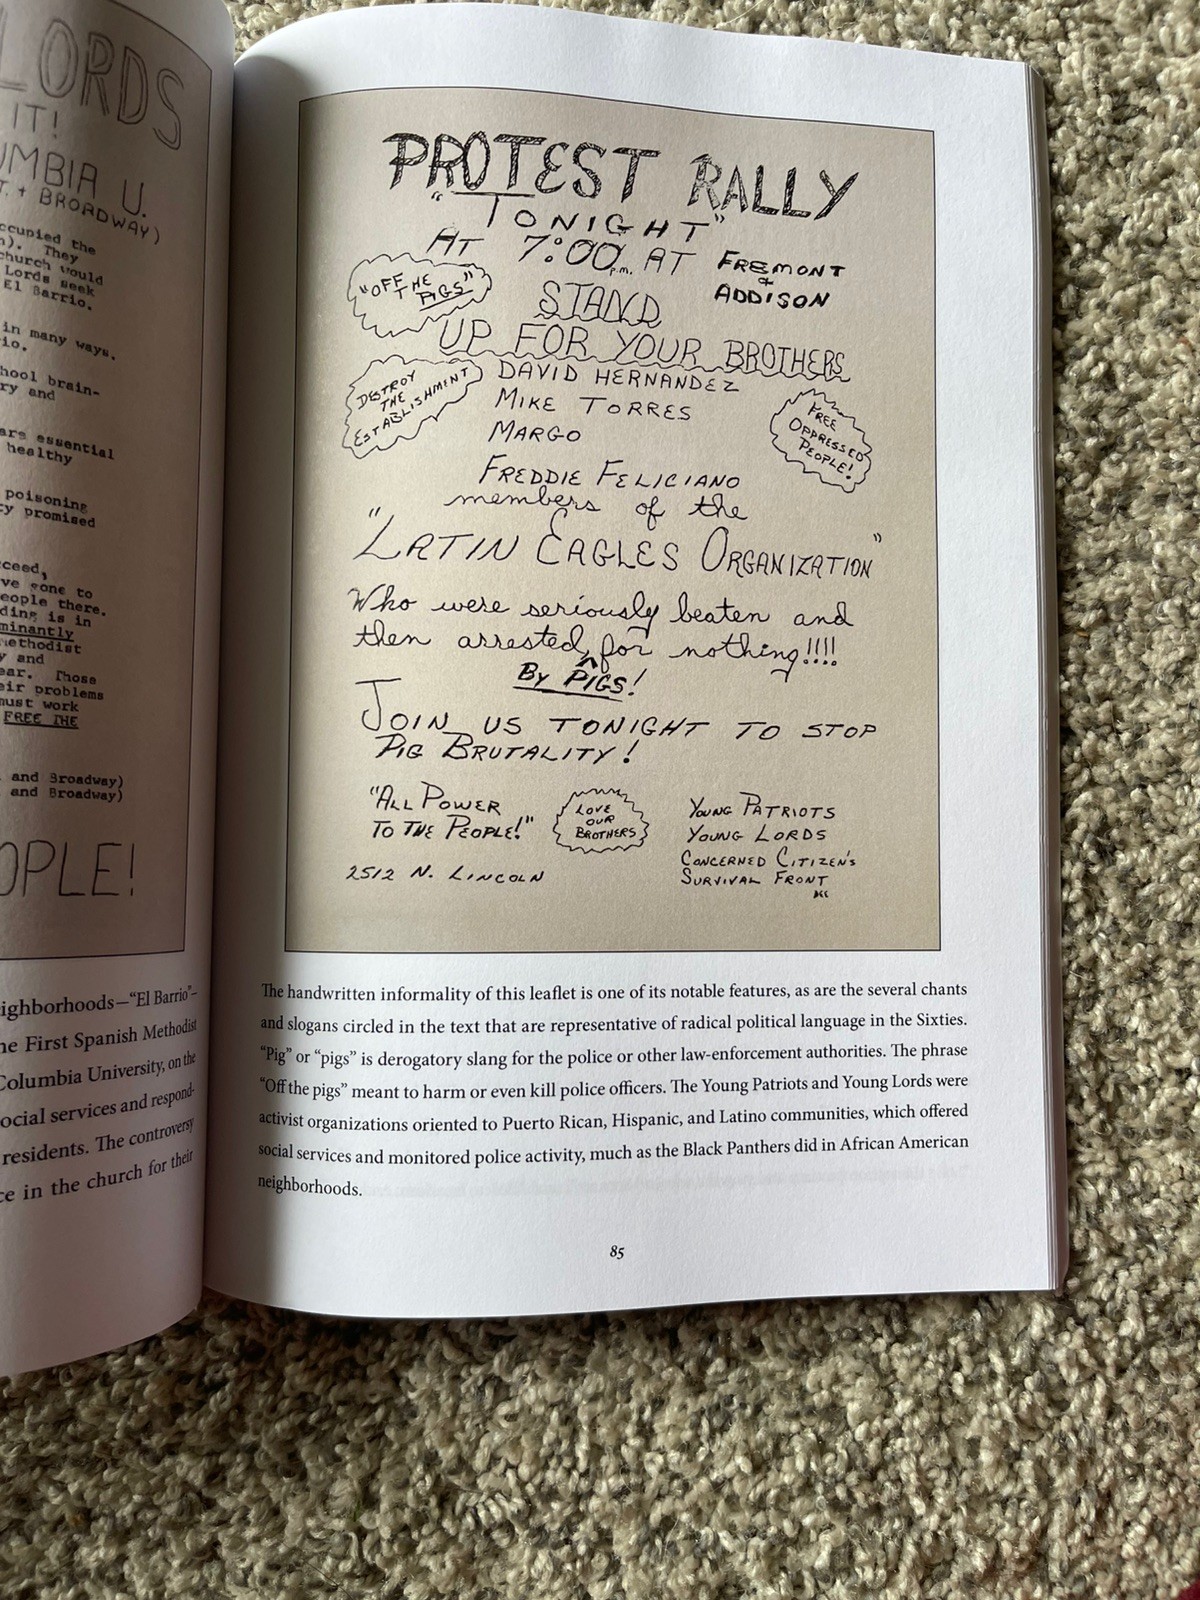 LORDS
IT!
UMBIA U.
T. + BROADWAY)
ccupied the
). They
church would
Lords seek
El Barrio.
in many ways.
io.
hool brain-
ry and
are essential
healthy
poisoning
ty promised
ceed,
ve gone to
eople there.
ding is in
minantly
ethodist
y and
ear. Those
eir problems
must work
FREE THE
and Broadway)
and Broadway)
OPLE!
ighborhoods—“El Barrio”–
he First Spanish Methodist
Columbia University, on the
ocial services and respond-
residents. The controversy
ce in the church for their
PROTEST RALLY
"TONIGHT"
AT 7:00 P.M. AT FREMONT
& ADDISON
"OFF THE PIGS"
STAND
UP FOR YOUR BROTHERS
DESTROY
THE
ESTABLISHMENT
DAVID HERNANDEZ
MIKE TORRES
MARGO
FREDDIE FELICIANO
FREE
OPPRESSED
PEOPLE!
members of the
"LATIN EAGLES ORGANIZATION"
Who were seriously beaten and
then arrested, for nothing!!!!
^
BY PIGS!
JOIN US TONIGHT TO STOP
PIG BRUTALITY!
"ALL POWER
TO THE PEOPLE!"
LOVE
OUR
BROTHERS
YOUNG PATRIOTS
YOUNG LORDS
CONCERNED CITIZEN'S
SURVIVAL FRONT
2512 N. LINCOLN
The handwritten informality of this leaflet is one of its notable features, as are the several chants
and slogans circled in the text that are representative of radical political language in the Sixties.
“Pig” or “pigs” is derogatory slang for the police or other law-enforcement authorities. The phrase
“Off the pigs” meant to harm or even kill police officers. The Young Patriots and Young Lords were
activist organizations oriented to Puerto Rican, Hispanic, and Latino communities, which offered
social services and monitored police activity, much as the Black Panthers did in African American
neighborhoods.
85